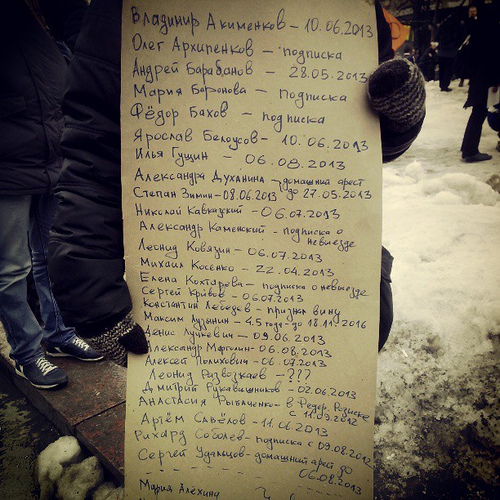 Владимир Акименков – 10.06.2013
Олег Архипенков – подписка
Андрей Барабанов – 28.05.2013
Мария Боронова – подписка
Фёдор Бахов – подписка
Ярослав Белоусов – 10.06.2013
Илья Гущин – 06.08.2013
Александра Духанина – домашний арест
Степан Зимин – 08.06.2013 до 27.05.2013
Николай Кавказский – 06.07.2013
Александр Каменский – подписка о
невыезде
Леонид Ковязин – 06.07.2013
Михаил Косенко – 22.04.2013
Елена Кохтарева – подписка о невыезде
Сергей Кривов – 06.07.2013
Константин Лебедев – признал вину
Максим Лузянин – 4.5 года – до 18.11.2016
Денис Луцкевич – 09.06.2013
Александр Марголин – 06.08.2013
Алексей Полихович – 06.07.2013
Леонид Развозжаев – ???
Дмитрий Рукавишников – 02.06.2013
Анастасия Рыбаченко – в Федер. Розыске
с 11.09.2012
Артём Савёлов – 11.06.2013
Рихард Соболев – подписка с 09.08.2012
Сергей Удальцов – домашний арест до
06.08.2013
Мария Алёхина